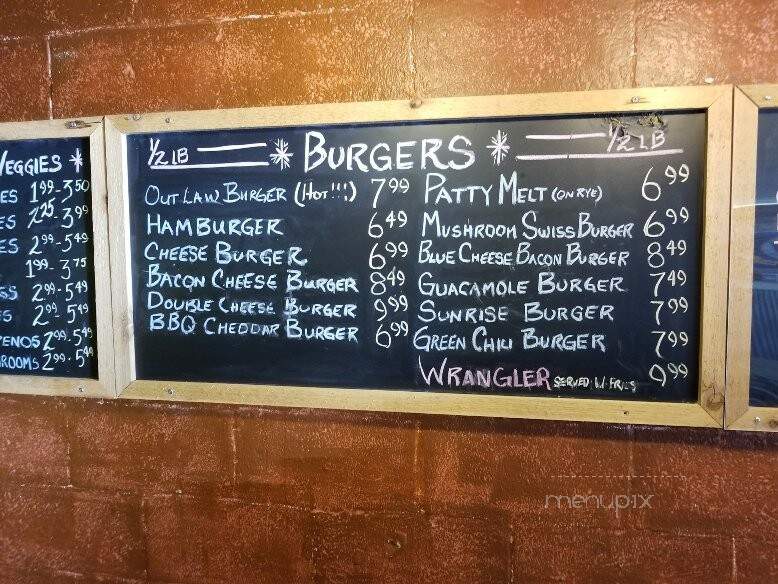 VEGGIES
ES 1.99-3.50
ES 2.25 3.99
ES 2.99-5.49
1.99-3.75
GS 2.99-5.49
S 2.99 5.49
PENOS 2.99-5.49
ROOMS 2.99-5.49
1/2 LB BURGERS 1/2 LB
OUTLAW BURGER (HOT!!!) 7.99
HAMBURGER 6.49
CHEESE BURGER 6.99
BACON CHEESE BURGER 8.49
DOUBLE CHEESE BURGER 9.99
BBQ CHEDDAR BURGER 6.99
PATTY MELT (ON RYE) 6.99
MUSHROOM SWISS BURGER 6.99
BLUE CHEESE BACON BURGER 8.49
GUACAMOLE BURGER 7.49
SUNRISE BURGER 7.99
GREEN CHILI BURGER 7.99
WRANGLER SERVED W/ FRIES 9.99
menupix